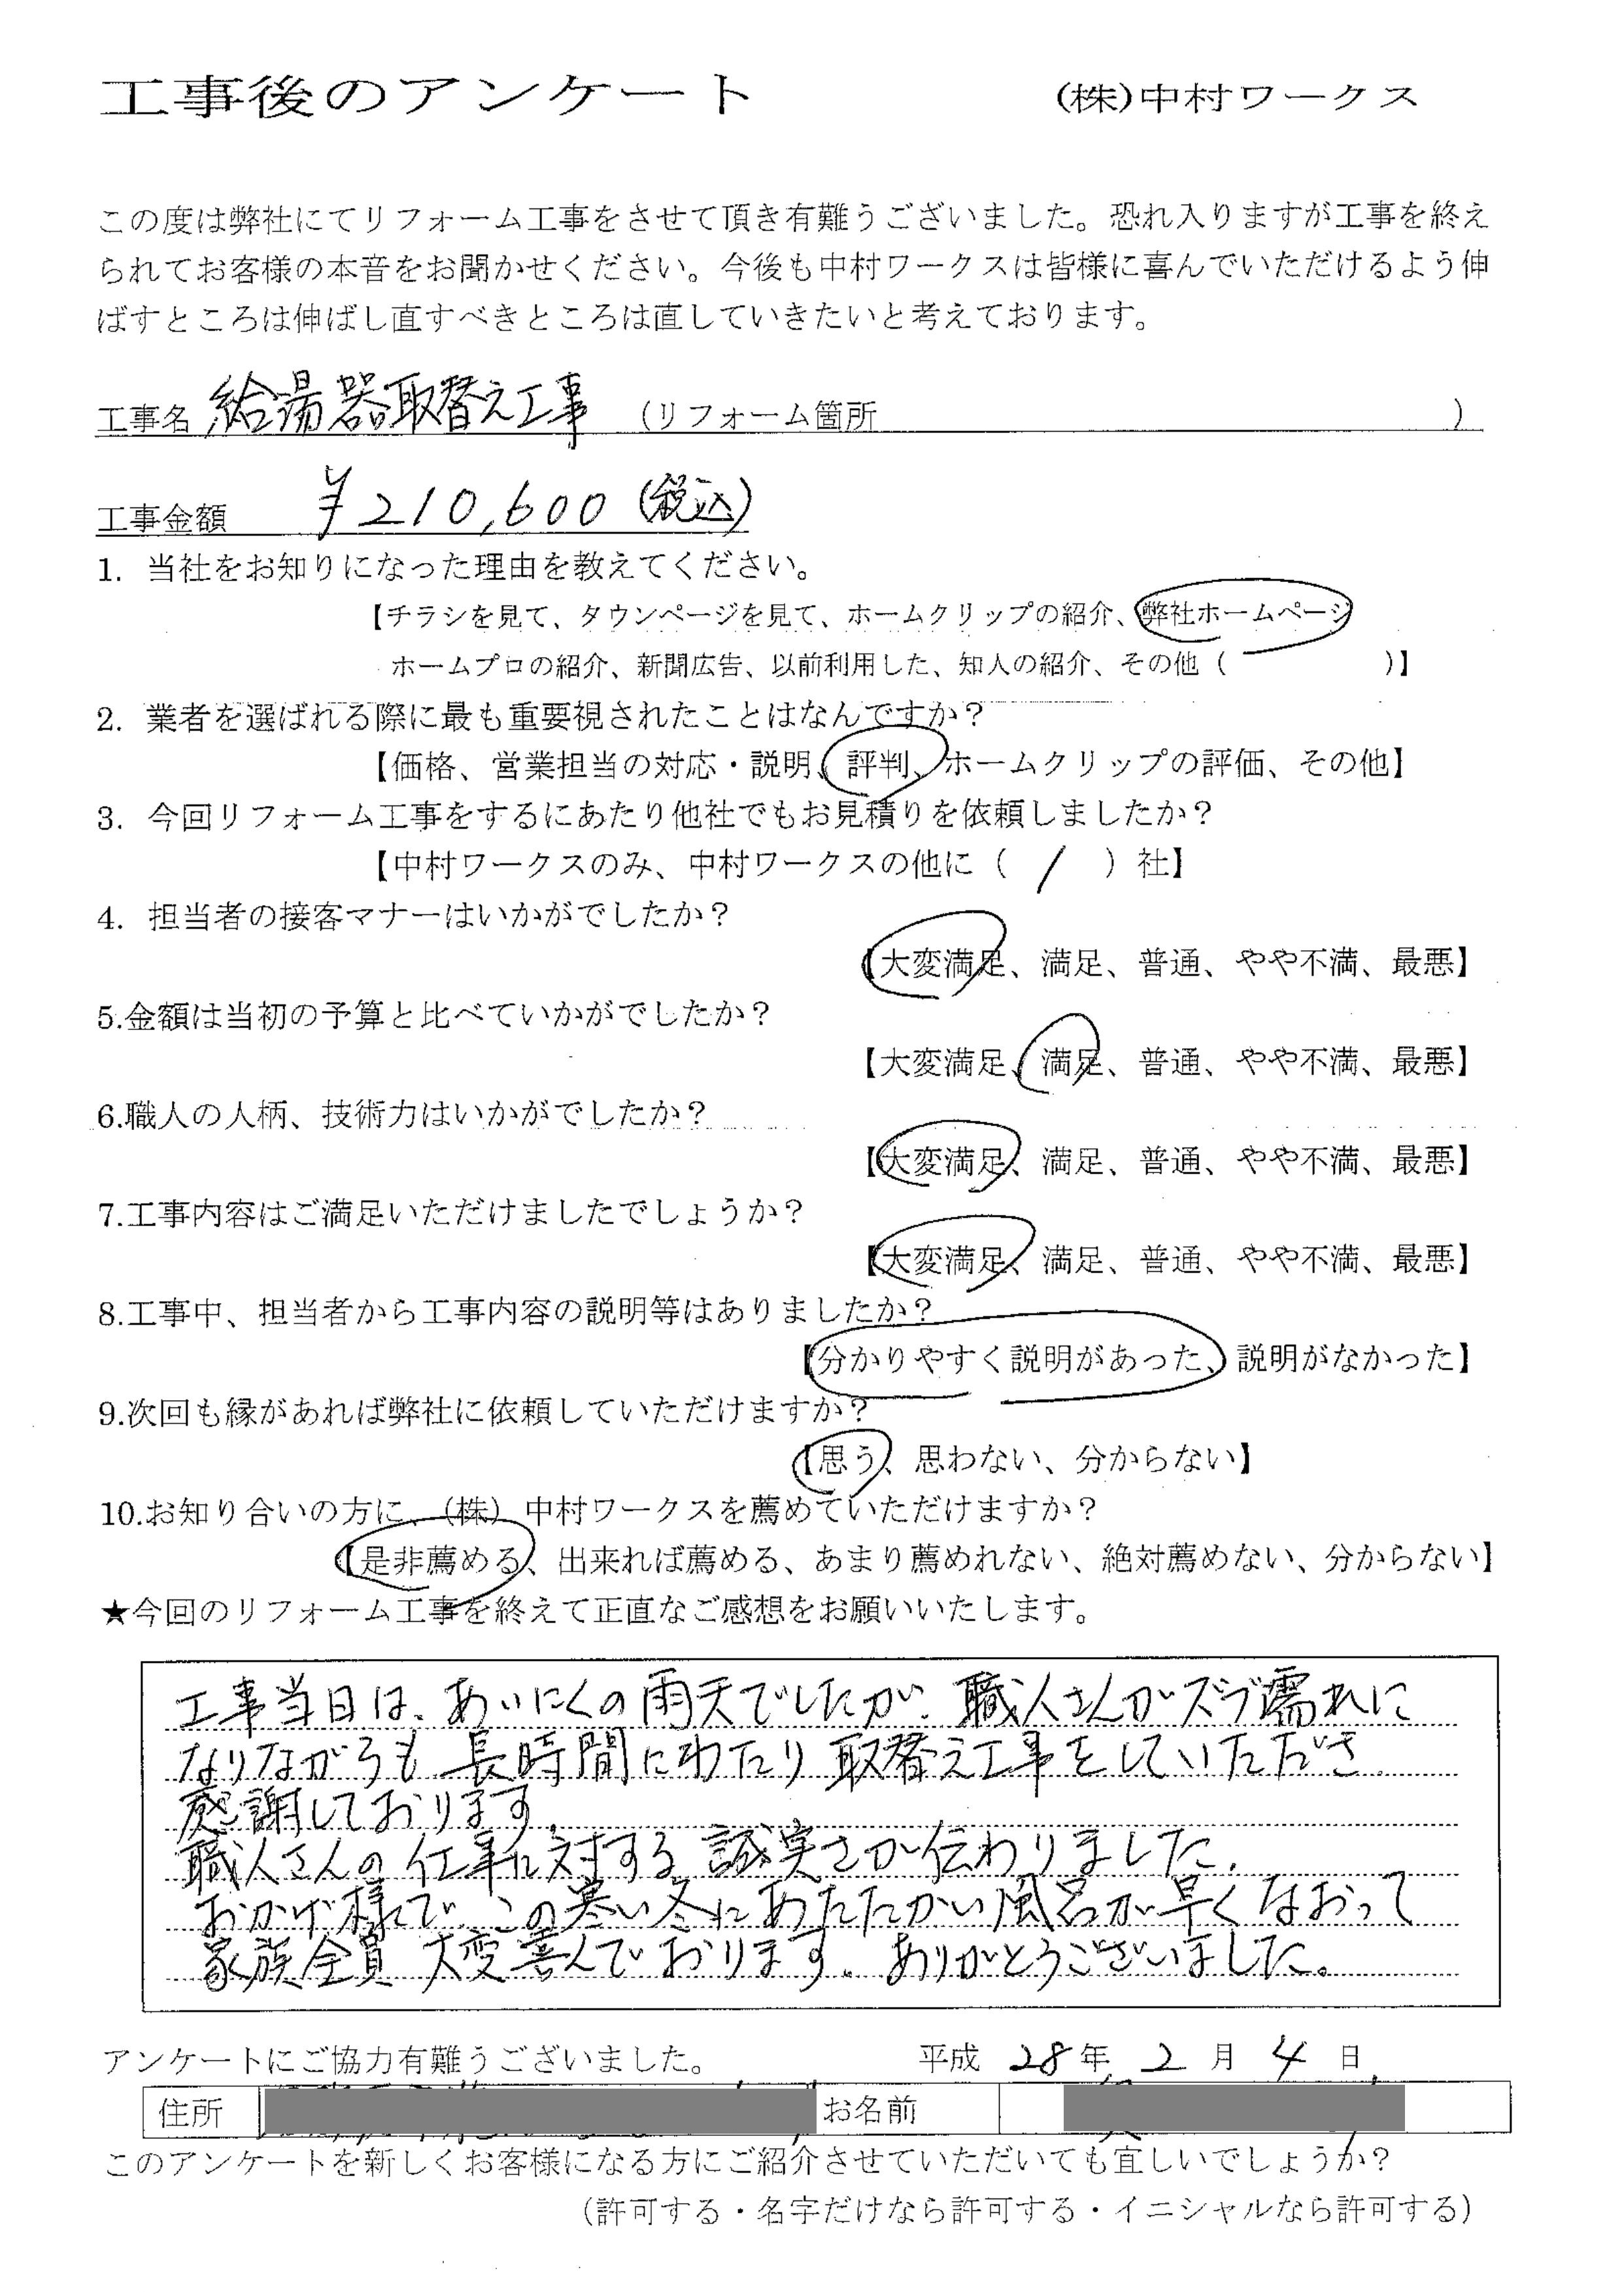 工事後のアンケート　(株)中村ワークス
この度は弊社にてリフォーム工事をさせて頂き有難うございました。恐れ入りますが工事を終え
られてお客様の本音をお聞かせください。今後も中村ワークスは皆様に喜んでいただけるよう伸
ばすところは伸ばし直すべきところは直していきたいと考えております。
工事名 給湯器取替え工事 （リフォーム箇所　）
工事金額 ￥210,600（税込）
1. 当社をお知りになった理由を教えてください。
【チラシを見て、タウンページを見て、ホームクリップの紹介、弊社ホームページ
ホームプロの紹介、新聞広告、以前利用した、知人の紹介、その他（　）】
2. 業者を選ばれる際に最も重要視されたことはなんですか？
【価格、営業担当の対応・説明、評判、ホームクリップの評価、その他】
3. 今回リフォーム工事をするにあたり他社でもお見積りを依頼しましたか？
【中村ワークスのみ、中村ワークスの他に（ / ）社】
4. 担当者の接客マナーはいかがでしたか？
【大変満足、満足、普通、やや不満、最悪】
5.金額は当初の予算と比べていかがでしたか？
【大変満足、満足、普通、やや不満、最悪】
6.職人の人柄、技術力はいかがでしたか？
【大変満足、満足、普通、やや不満、最悪】
7.工事内容はご満足いただけましたでしょうか？
【大変満足、満足、普通、やや不満、最悪】
8.工事中、担当者から工事内容の説明等はありましたか？
【分かりやすく説明があった、説明がなかった】
9.次回も縁があれば弊社に依頼していただけますか？
【思う、思わない、分からない】
10.お知り合いの方に、（株）中村ワークスを薦めていただけますか？
【是非薦める、出来れば薦める、あまり薦めれない、絶対薦めない、分からない】
★今回のリフォーム工事を終えて正直なご感想をお願いいたします。
工事当日は、あいにくの雨天でしたが、職人さんがズブ濡れに
なりながらも 長時間にわたり 取替え工事をしていただき
感謝しております。
職人さんの 仕事に対する 誠実さが伝わりました。
おかげ様で、この寒い冬にあたたかい風呂が早くなおって
家族全員 大変喜んでおります。ありがとうございました。
アンケートにご協力有難うございました。　平成 28年 2月 4日
住所　お名前
このアンケートを新しくお客様になる方にご紹介させていただいても宜しいでしょうか？
（許可する・名字だけなら許可する・イニシャルなら許可する）